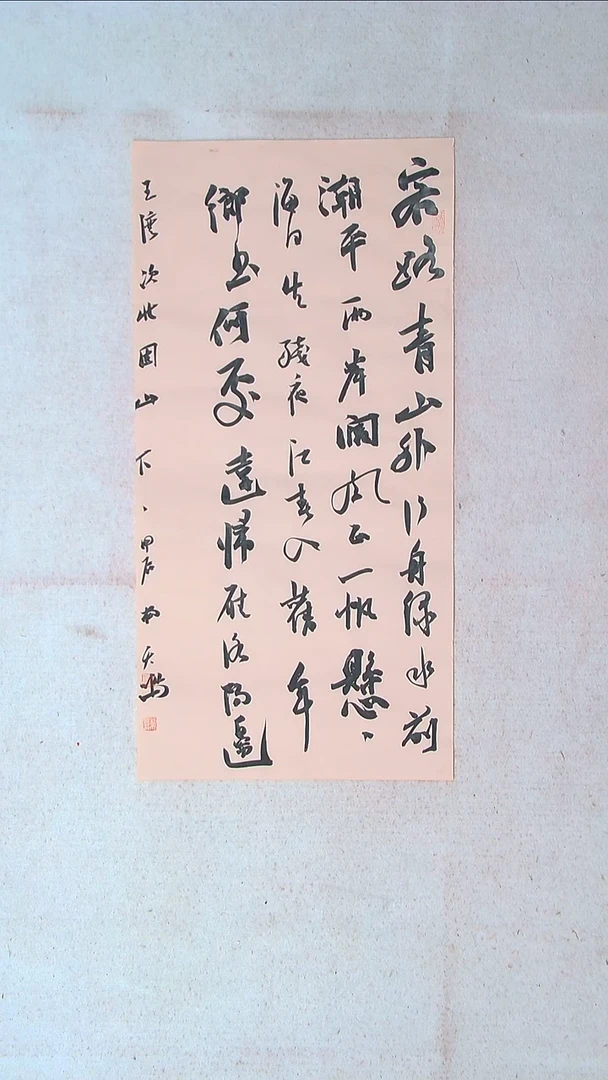 客路青山外行舟绿水前
潮平两岸阔风正一帆懸
海日生残夜江春入舊年
鄉书何處達歸雁洛陽邊
王湾次北固山下甲辰